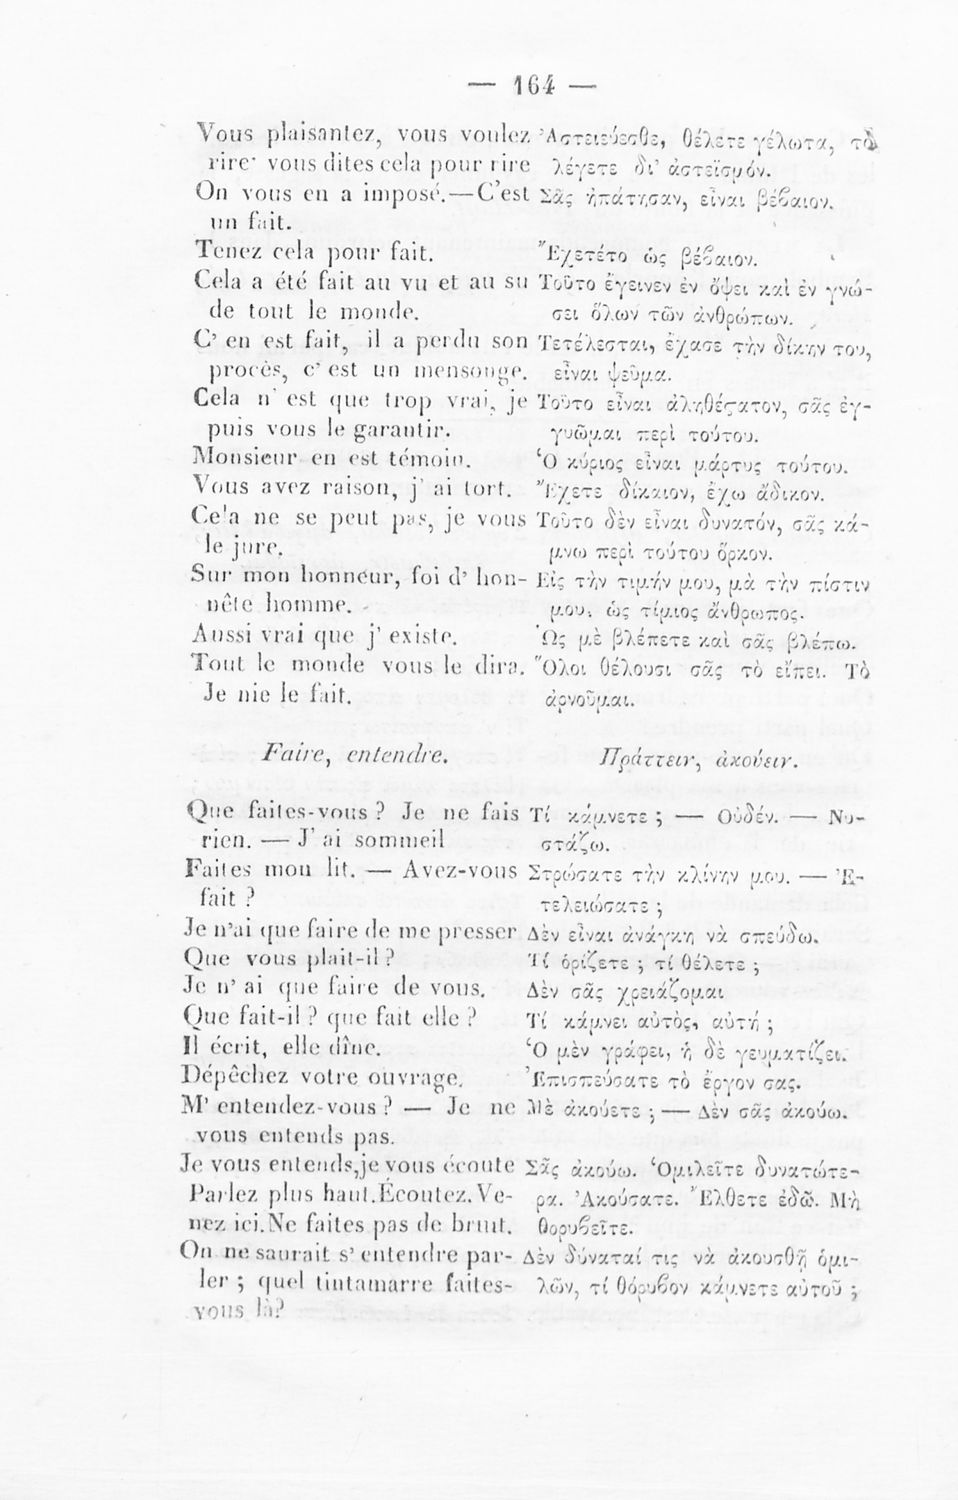 — 164 —
Vous plaisantez, vous voulez
rire· vous dites cela pour rire
On vous en a imposé.—C'est
un fait.
Tenez cela pour fait.
Cela a été fait au vu et au su
de tout le monde.
C' en est fait, il a perdu son
procès, c' est un mensonge.
Cela n' est que trop vrai, je
puis vous le garantir.
Monsieur en est témoin.
Vous avez raison, j' ai tort.
Cela ne se peut pas, je vous
le jure.
Sur mon honneur, foi d' hon-
nête homme.
Aussi vrai que j' existe.
Tout le monde vous le dira.
Je nie le fait.
Ἀστειεύεσθε, θέλετε γέλωτα, τὸ
λέγετε δι' ἀστεϊσμόν.
Σᾶς ἠπάτησαν, εἶναι βέβαιον.
Ἔχετέτο ὡς βέβαιον.
Τοῦτο ἔγεινεν ἐν ὄψει καὶ ἐν γνώ-
σει ὅλων τῶν ἀνθρώπων.
Τετέλεσται, ἔχασε τὴν δίκην του,
εἶναι ψεῦμα.
Τοῦτο εἶναι ἀληθέϛατον, σᾶς ἐγ-
γυῶμαι περὶ τούτου.
Ὁ κύριος εἶναι μάρτυς τούτου.
Ἔχετε δίκαιον, ἔχω ἄδικον.
Τοῦτο δὲν εἶναι δυνατόν, σᾶς κά-
μνω περὶ τούτου ὅρκον.
Εἰς τὴν τιμήν μου, μὰ τὴν πίστιν
μου, ὡς τίμιος ἄνθρωπος.
Ὡς μὲ βλέπετε καὶ σᾶς βλέπω.
Ὅλοι θέλουσι σᾶς τὸ εἴπει. Τὸ
ἀρνοῦμαι.
Faire, entendre.
Πράττειν, ἀκούειν.
Que faites-vous ? Je ne fais
rien. — J' ai sommeil
Faites mon lit. — Avez-vous
fait ?
Je n'ai que faire de me presser
Que vous plait-il ?
Je n' ai que faire de vous.
Que fait-il ? que fait elle ?
Il écrit, elle dîne.
Dépêchez votre ouvrage.
M' entendez-vous ? — Je ne
vous entends pas.
Je vous entends, je vous écoute
Parlez plus haut. Écoutez. Ve-
nez ici. Ne faites pas de bruit.
On ne saurait s' entendre par-
ler ; quel tintamarre faites-
vous là?
Τί κάμνετε ; — Οὐδέν. — Νυ-
στάζω.
Στρώσατε τὴν κλίνην μου. — Ἐ-
τελειώσατε ;
Δὲν εἶναι ἀνάγκη νὰ σπεύδω.
Τί ὁρίζετε ; τί θέλετε ;
Δὲν σᾶς χρειάζομαι
Τί κάμνει αὐτὸς, αὐτή ;
Ὁ μὲν γράφει, ἡ δὲ γευματίζει.
Ἐπισπεύσατε τὸ ἔργον σας.
Μὲ ἀκούετε ; — Δὲν σᾶς ἀκούω.
Σᾶς ἀκούω. Ὁμιλεῖτε δυνατώτε-
ρα. Ἀκούσατε. Ἔλθετε ἐδῶ. Μὴ
θορυβεῖτε.
Δὲν δύναταί τις νὰ ἀκουσθῇ ὁμι-
λῶν, τί θόρυβον κάμνετε αὐτοῦ ;